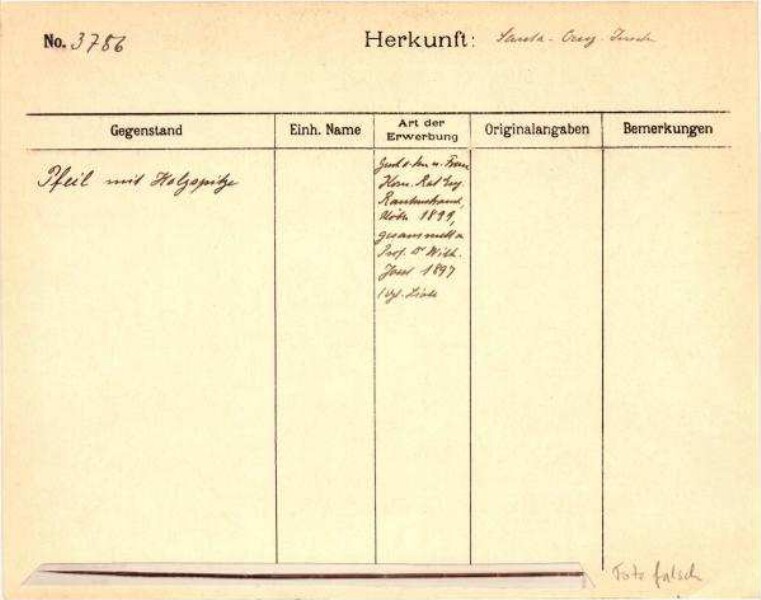 No. 3786 Herkunft: Santa-Cruz-Inseln
Gegenstand Einh. Name Art der Erwerbung Originalangaben Bemerkungen
Pfeil mit Holzspitze
Gesch. u. Frau
Kom. Rat Eug.
Rautenstrauch,
Köln 1899,
gesammelt v.
Prof. Dr Wilh.
Joest 1897
Liste
Foto falsch